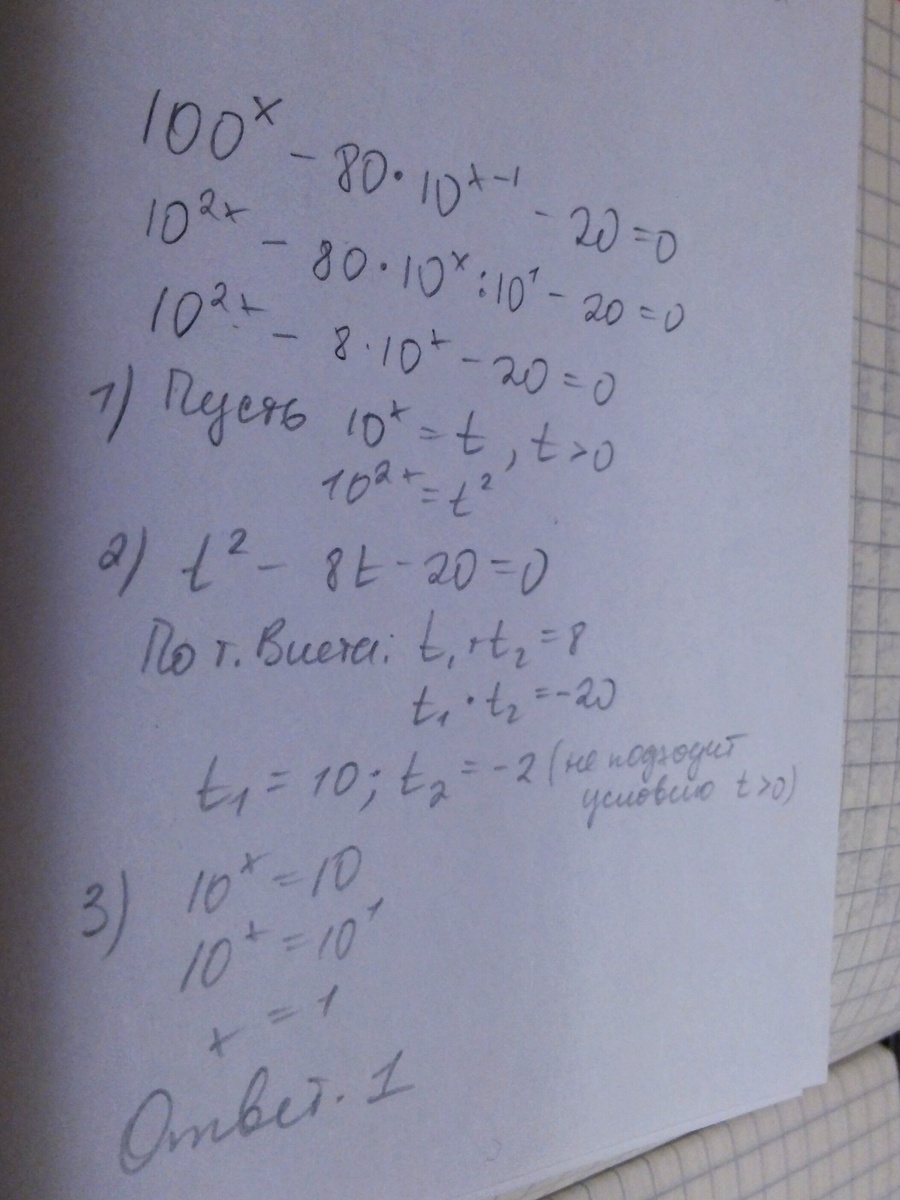 100ˣ - 80·10ˣ⁻¹ - 20=0
10²ˣ - 80·10ˣ:10¹ - 20=0
10²ˣ - 8·10ˣ - 20=0
1) Пусть 10ˣ = t, t>0
10²ˣ = t²
2) t² - 8t - 20=0
По т. Виета: t₁+t₂=8
t₁·t₂=-20
t₁ = 10; t₂ = -2 (не подходит
условию t>0)
3) 10ˣ = 10
10ˣ = 10¹
x = 1
Ответ. 1